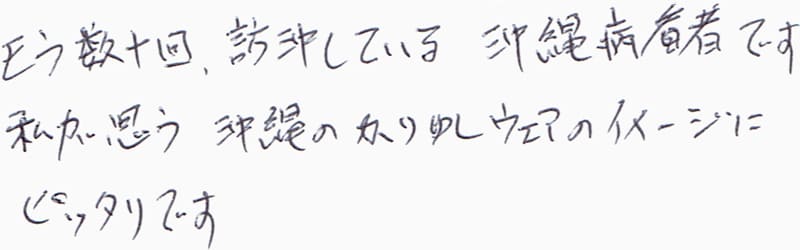 もう数十回、訪沖している 沖縄病患者です
私が思う 沖縄のかりゆしウェアのイメージに
ピッタリです